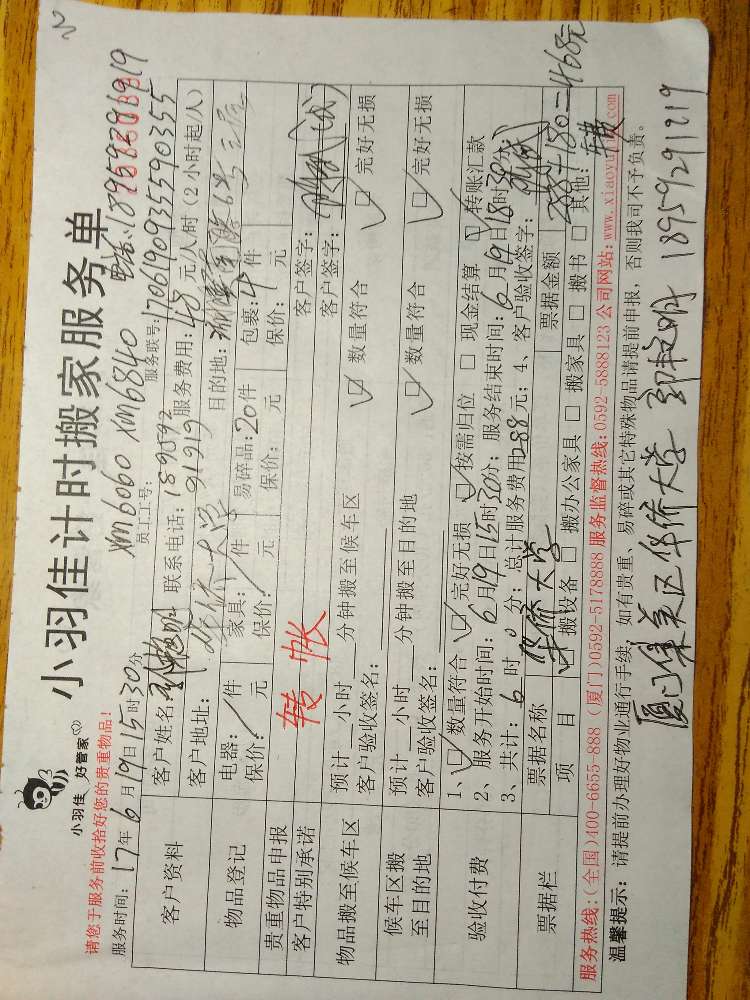 小羽佳 好管家
小羽佳计时搬家服务单
电话:18959291919
请您于服务前收拾好您的贵重物品!
xm6060 xm6840
服务时间:17年6月19日15时30分
员工工号:
服务联号:170619093559 0355
客户资料
客户姓名:
联系电话:18959291919
服务费用:48元/人/时(2小时起/人)
客户地址:华侨大学
目的地:
物品登记
电器:/件
家具:/件
易碎品:20件
包裹:4件
保价: 元
保价: 元
保价: 元
保价: 元
贵重物品申报
客户签字:
客户特别承诺
转帐
客户签字:
物品搬至候车区
预计 小时 分钟搬至候车区
客户验收签名:
数量符合
完好无损
候车区搬至目的地
预计 小时 分钟搬至目的地
客户验收签名:
数量符合
完好无损
验收付费
1、数量符合 完好无损 按需归位 现金结算 转账汇款
2、服务开始时间:6月19日15时30分;服务结束时间:6月19日18时30分
3、共计:6时0分;总计服务费用288元;4、客户验收签字:
票据栏
票据名称
华侨大学
票据金额
288+180=468元
项目
搬设备 搬办公家具 搬家具 搬书 其他:
服务热线:(全国)400-6655-888 (厦门)0592-5178888 服务监督热线:0592-5888123 公司网站:www.xiaoyujia.com
温馨提示:请提前办理好物业通行手续,如有贵重、易碎或其它特殊物品请提前申报,否则我司不予负责。
厦门集美区华侨大学 郭 明 18959291919